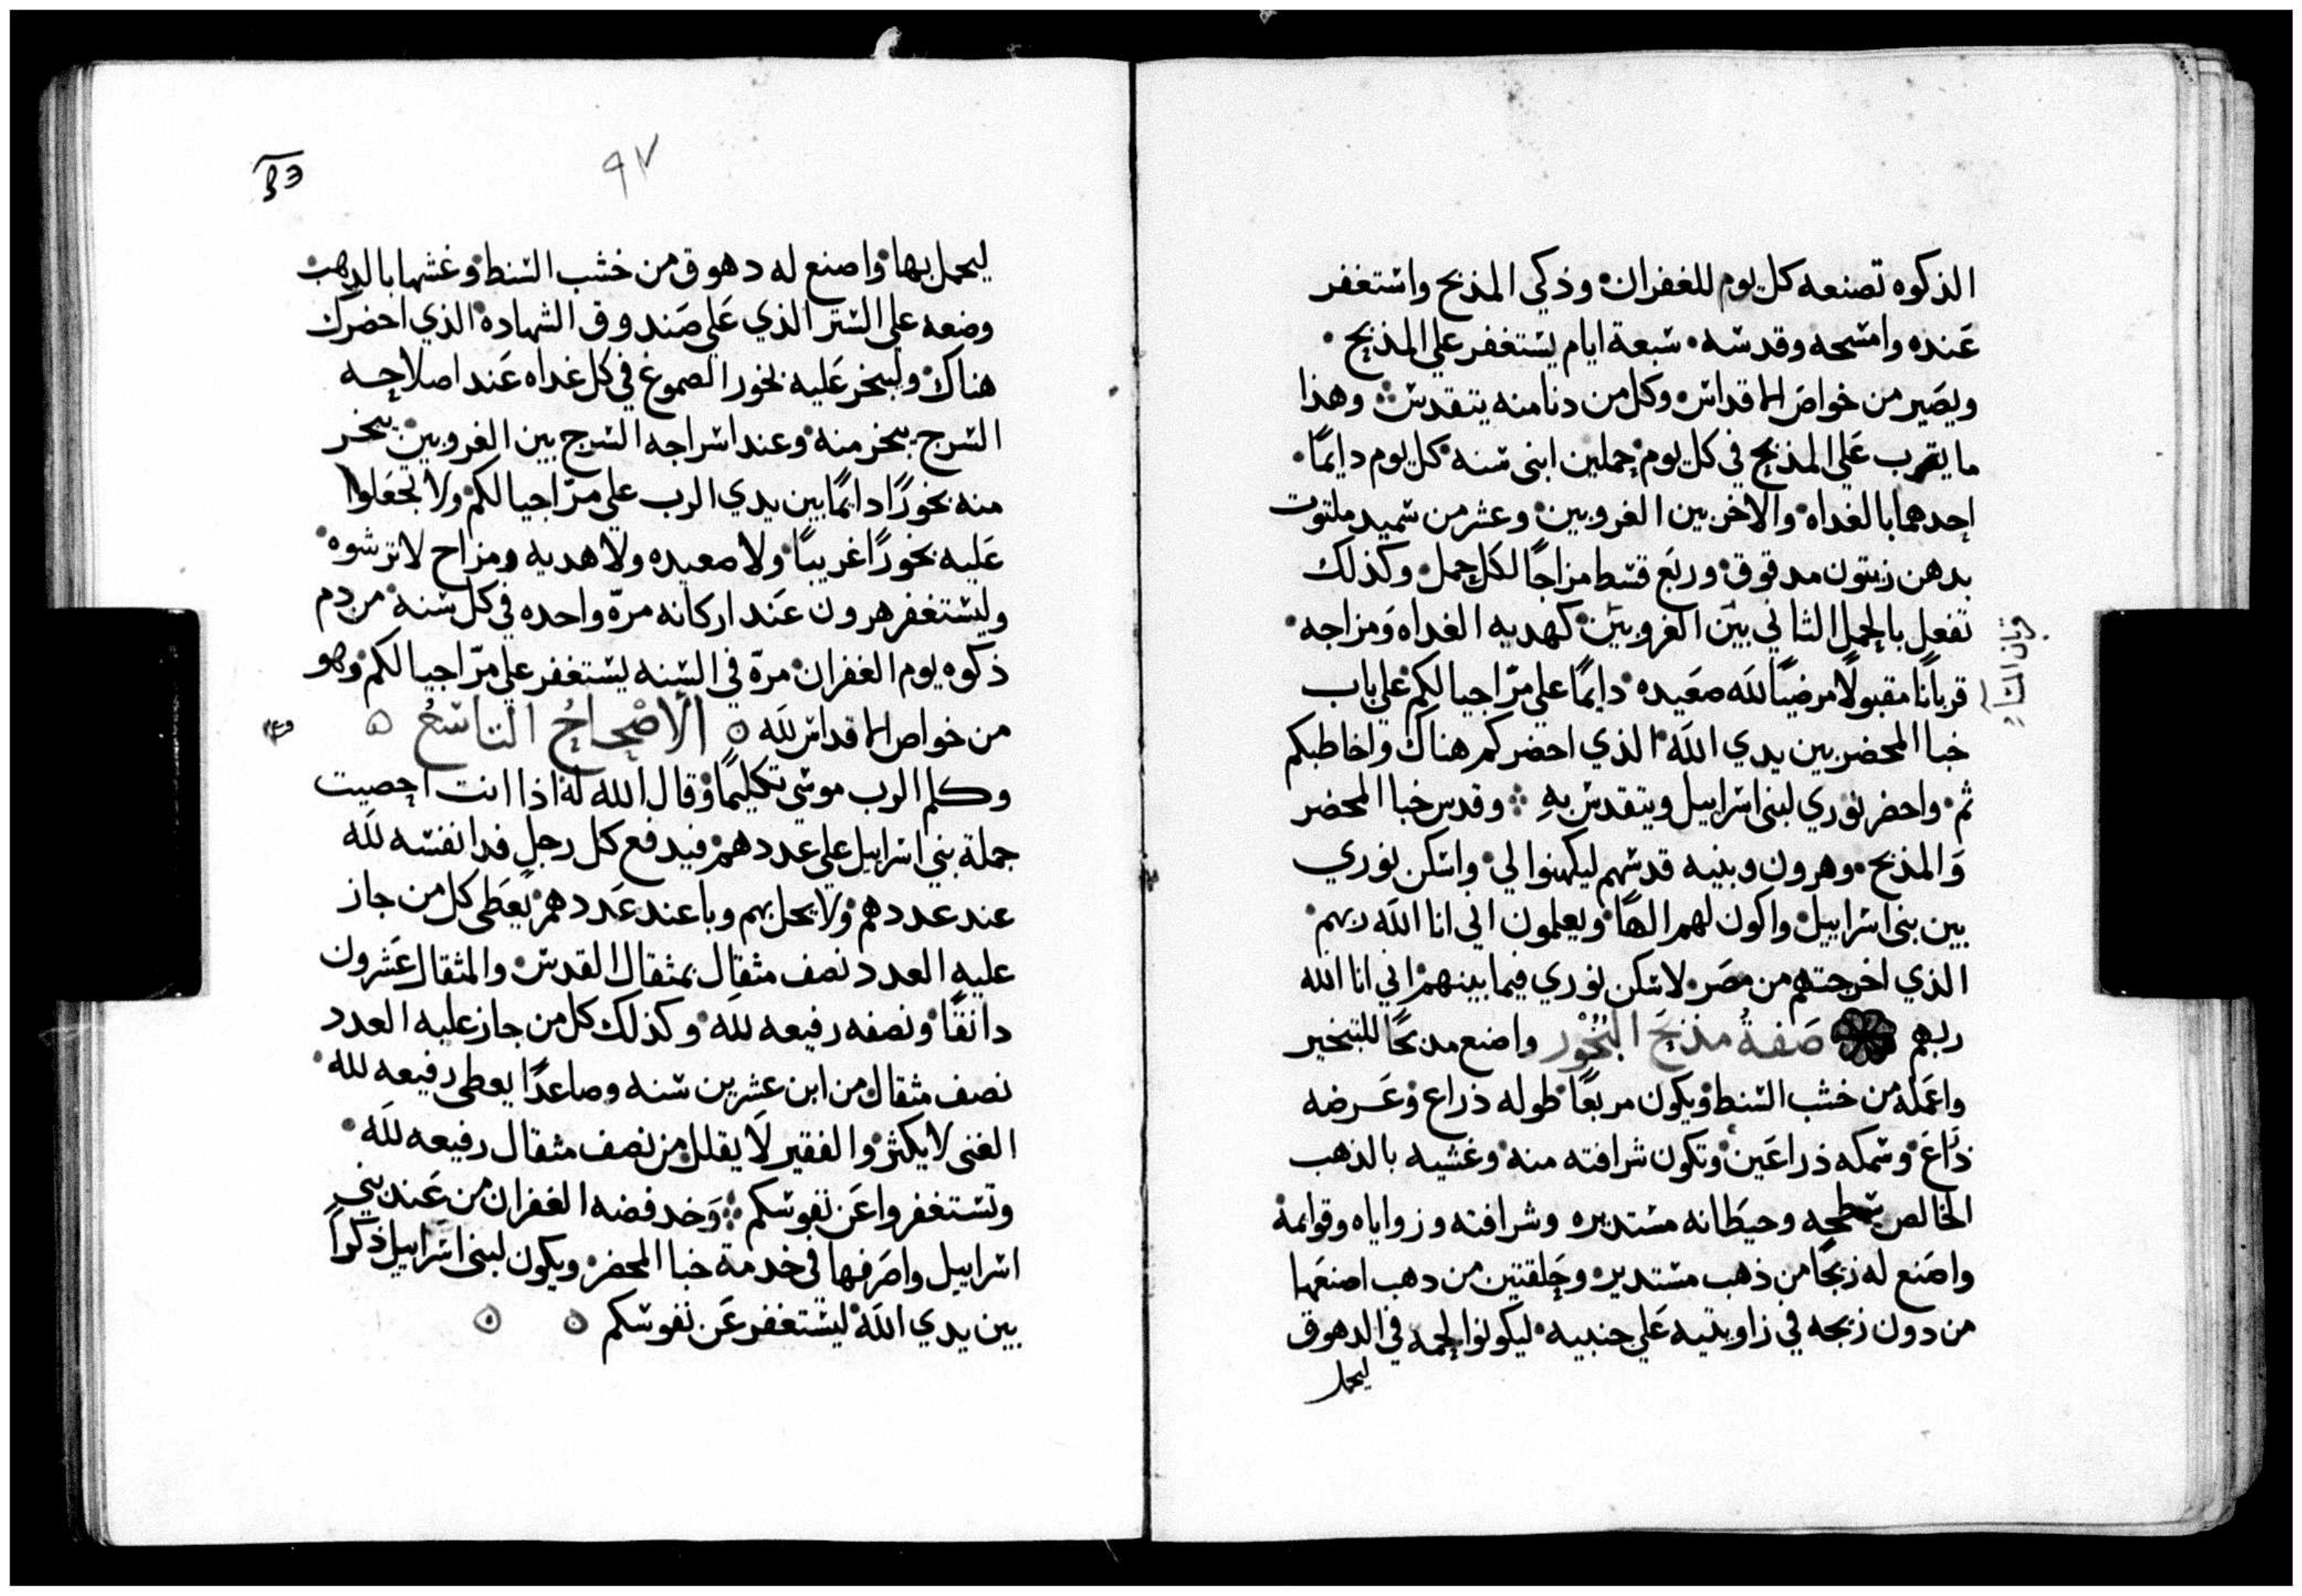 الذكوه تصنعه كل يوم للغفران وذكي المذبح واستغفر
عنده وامسحه وقدسه سبعة ايام يستغفر علي المذبح
ويصير من خواص الاقداس وكل من دنا منه يتقدس وهذا
ما يقرب علي المذبح في كل يوم حملين ابني سنه كل يوم دايمًا
احدهما بالغداه والاخر بين الغروبين وعشر من سميد ملتوت
بدهن زيتون مدقوق وربع قسط مزاجًا لكل حمل وكذلك
تفعل بالحمل الثاني بين الغروبين كهديه الغداه ومزاجه
قربانًا مقبولًا مرضيًا لله صعيده دايمًا علي مرّ اجيالكم علي باب
خبا المحضر بين يدي الله الذي احضركم هناك واخاطبكم
ثم واحضر نوري لبني اسراييل ويتقدس به وقدس خبا المحضر
والمذبح وهرون وبنيه قدسهم ليكهنوا لي واسكن نوري
بين بني اسراييل واكون لهم الهًا ويعلمون اني انا الله ربهم
الذي اخرجتهم من مصر لاسكن نوري فيما بينهم اني انا الله
ربهم صفةُ مذبح البُخُور واصنع مذبحًا للتبخير
واعمله من خشب السنط ويكون مربعًا طوله ذراع وعرضه
ذراع وسمكه ذراعين وتكون شرافته منه وغشيه بالذهب
الخالص سطحه وحيطانه مستديره وشرافته وزواياه وقوايمه
واصنع له زيجًا من ذهب مستدير وحلقتين من دهب اصنعها
من دون زيجه في زاويتيه علي جنبيه ليكونوا لحمه في الدهوق
ليحمل
قربان
٩٧
ليحمل بها واصنع له دهوق من خشب السنط وغشها بالدهب
وضعه علي الستر الذي علي صندوق الشهاده الذي احضرك
هناك وليبخر عليه بخور الصموغ في كل غداه عند اصلاحه
السرج يبخر منه وعند اسراجه السرج بين الغروبين يبخر
منه بخورًا دايمًا بين يدي الرب علي مرّ اجيالكم ولا تجعلوا
عليه بخورًا غريبًا ولا صعيده ولا هديه ومزاح لا ترشوه
وليستغفر هرون عند اركانه مرّه واحده في كل سنه من دم
ذكوه يوم الغفران مرّه في السنه يستغفر علي مرّ اجيالكم وهو
من خواص الاقداس لله الأصْحاحُ التاسعُ
وكلم الرب موسي تكليمًا وقال الله له اذا انت احصيت
جملة بني اسراييل علي عددهم فيدفع كل رجل فدا نفسه لله
عند عددهم ولا يحل بهم وبا عند عددهم يعطى كل من جاز
عليه العدد نصف مثقال بمثقال القدس والمثقال عشرون
دانقًا ونصفه رفيعه لله وكذلك كل من جاز عليه العدد
نصف مثقال من ابن عشرين سنه وصاعدًا يعطى رفيعه لله
الغنى لا يكثر والفقير لا يقلل من نصف مثقال رفيعه لله
وتستغفروا عن نفوسكم وخد فضه الغفران من عند بني
اسراييل واصرفها في خدمة خبا المحضر ويكون لبني اسراييل ذكرًا
بين يدي الله ليستغفر عن نفوسكم